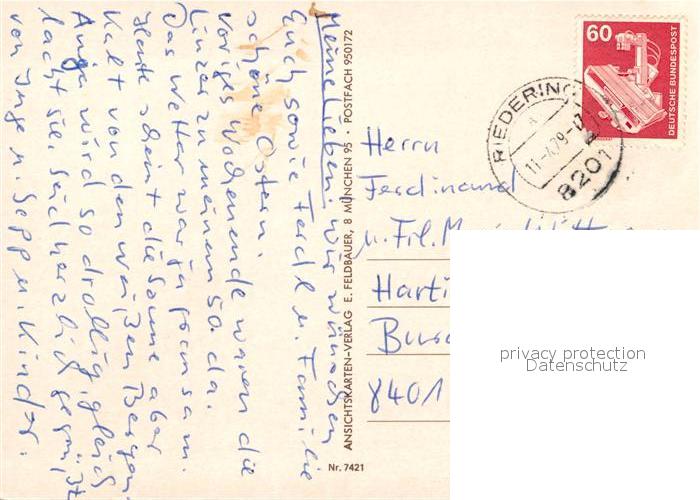 Meine Lieben! Wir wünschen
Euch sowie Ferdl u. Familie
schöne Ostern.
Voriges Wochenende waren die
Linzer zu meinem so da.
Das Wetter war ja grausam.
Heute scheint die Sonne aber
Kalt von den weißen Bergen.
Anja wird so drollig, gleich
lacht sie. Seid herzlich gegrüßt
von Inge u. Sepp u. Kinder.
ANSICHTSKARTEN-VERLAG E. FELDBAUER, 8 MÜNCHEN 95 · POSTFACH 950172
Nr. 7421
60
DEUTSCHE BUNDESPOST
RIEDERING
8201
Herrn
Ferdinand
u. Frl.
Harti
8401
privacy protection
Datenschutz